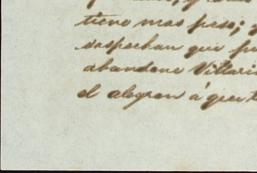 tiene mas peso; y
sospechan que fu
abandone Villari
el alegran á quer